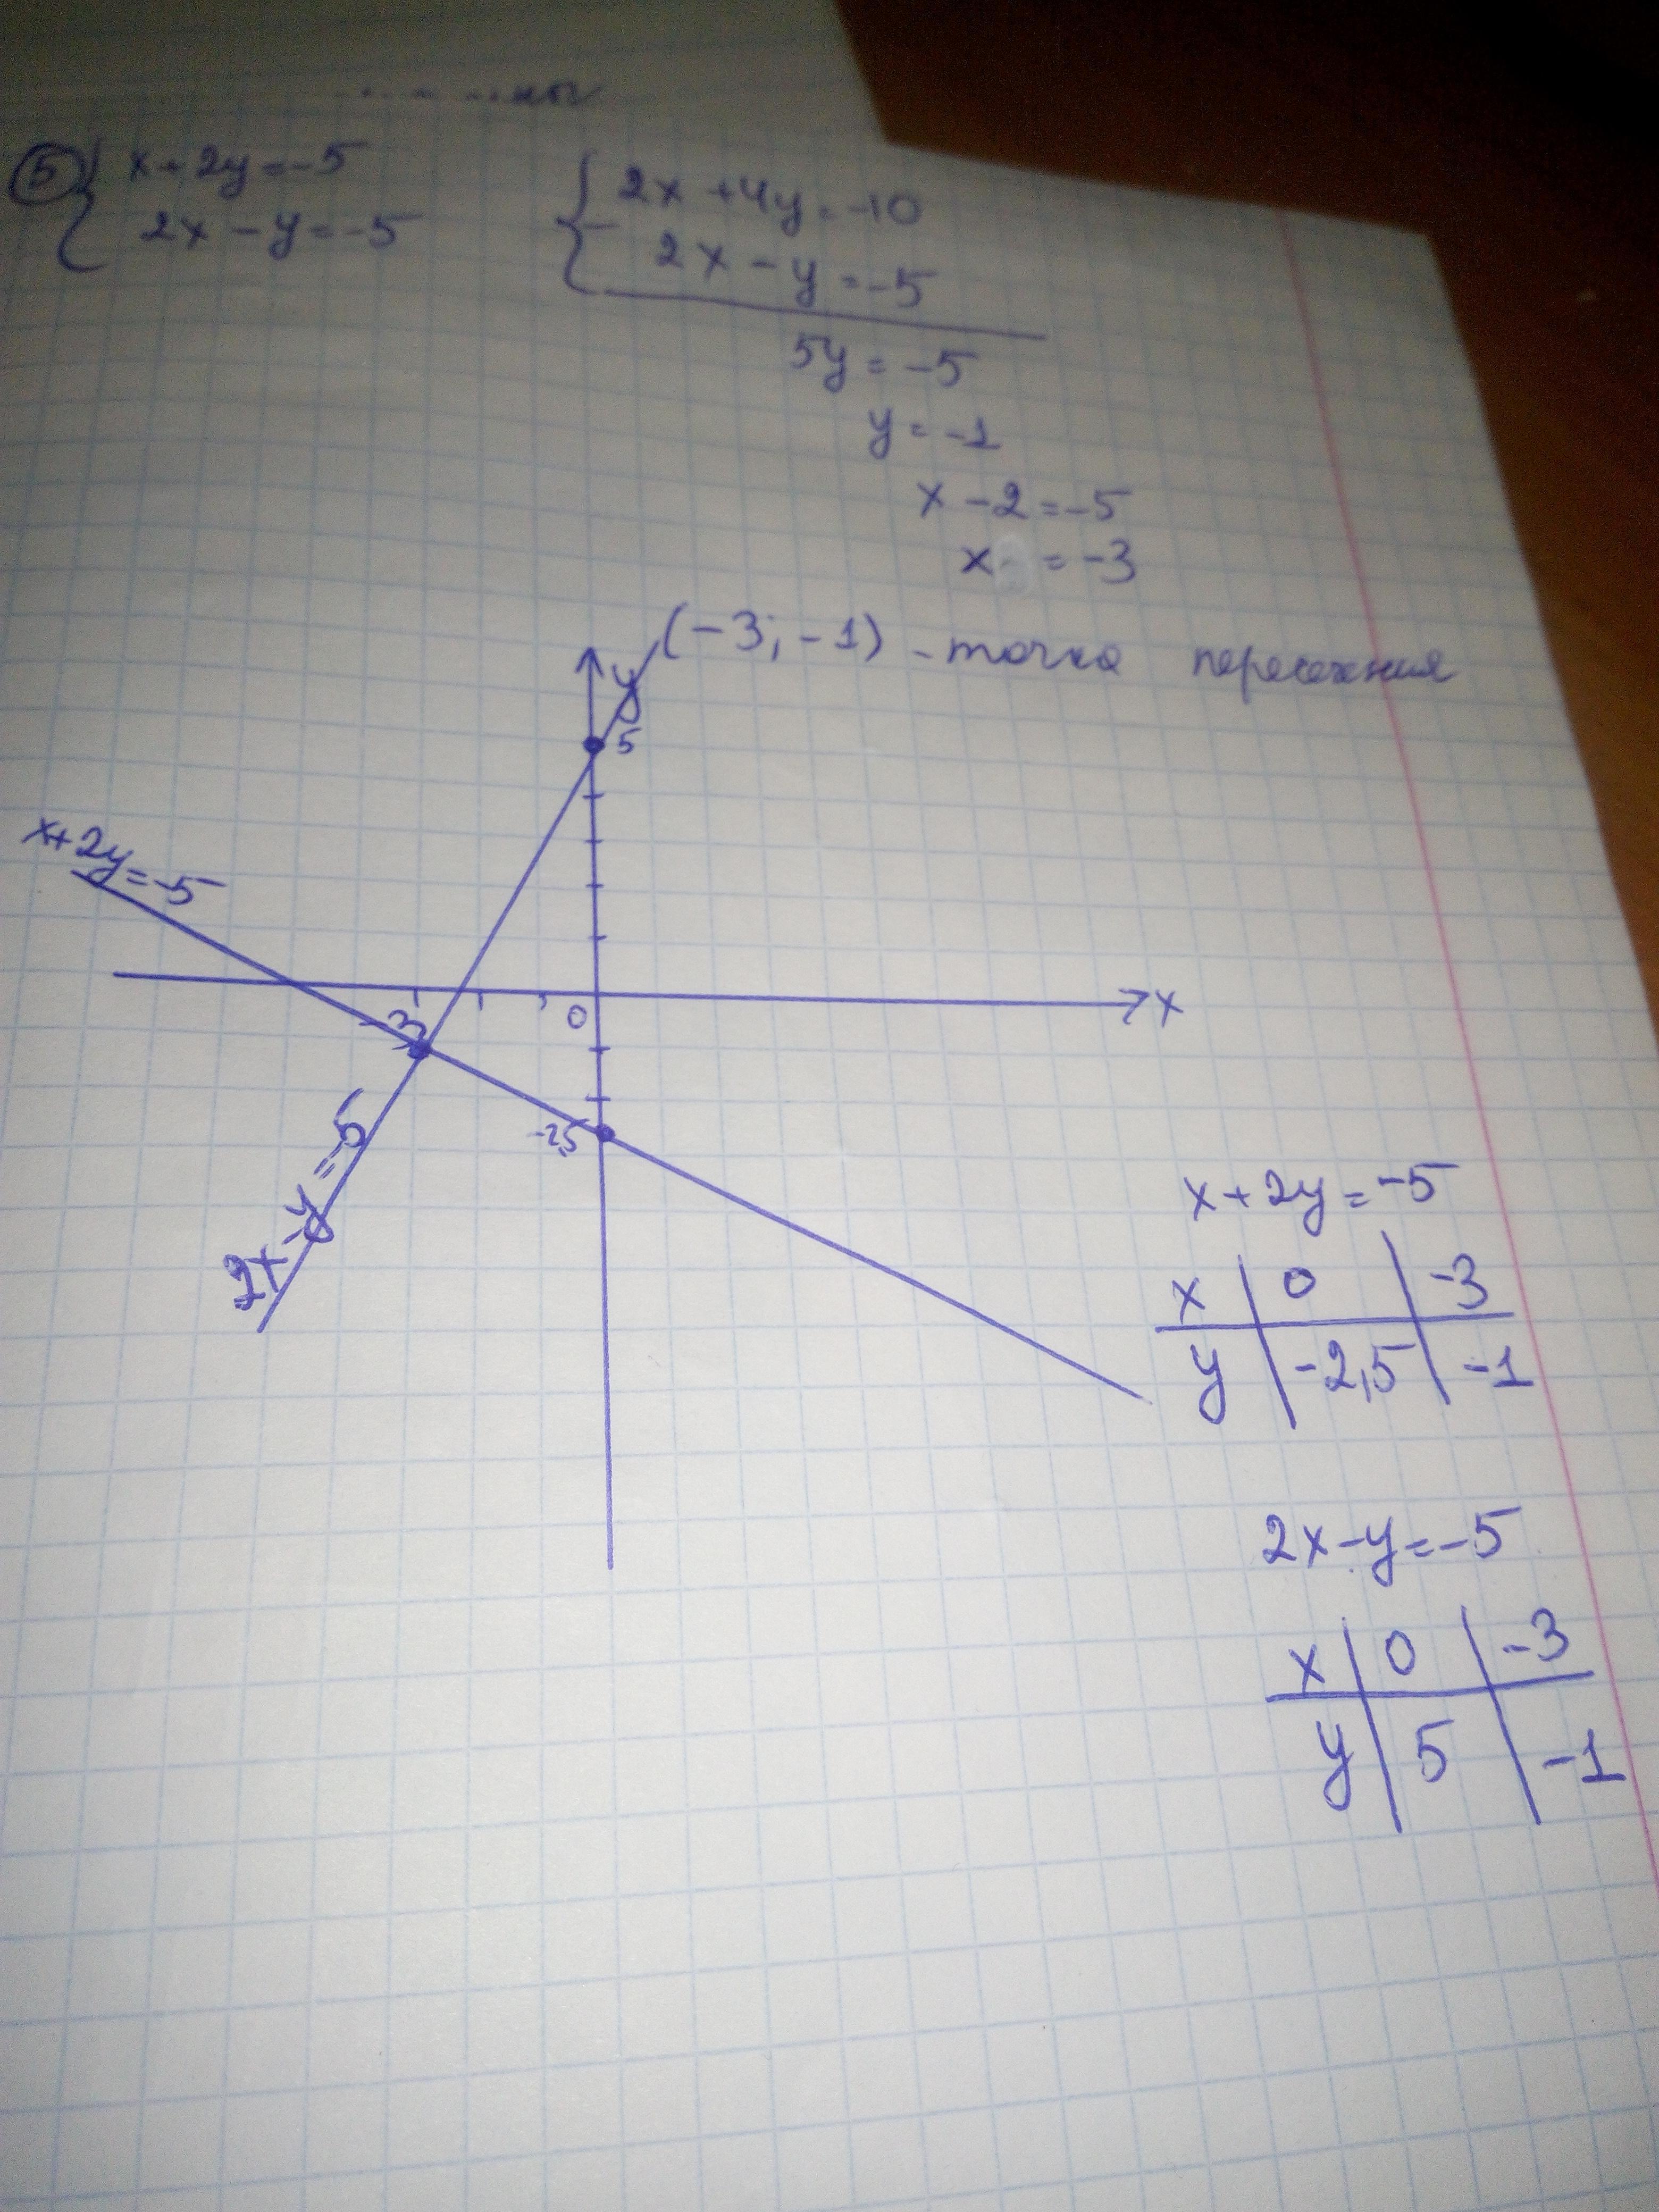 ⑤ { x+2y=-5
2x-y=-5
{ 2x+4y=-10
- 2x-y=-5
5y=-5
y=-1
x-2=-5
x=-3
(-3; -1) - точка пересечения
y
5
x+2y=-5
-3
0
x
-2,5
2x-y=-5
x+2y=-5
x | 0 | -3
y | -2,5 | -1
2x-y=-5
x | 0 | -3
y | 5 | -1